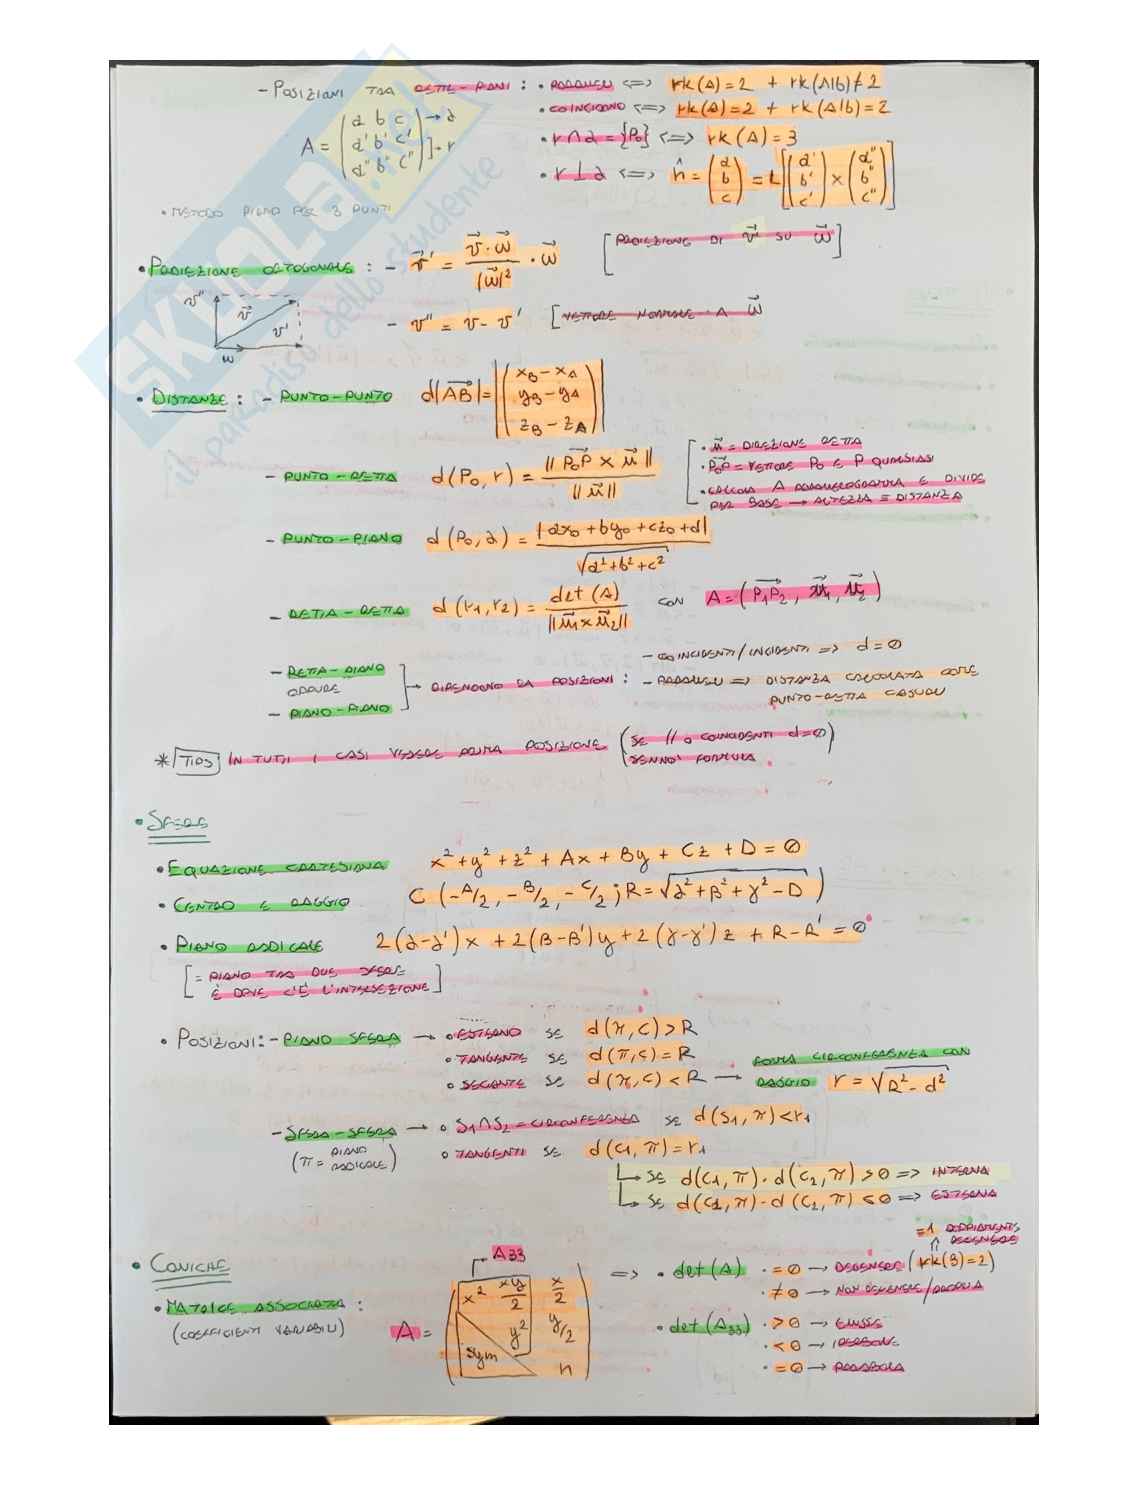 - POSIZIONI TRA RETTE-PIANI : • PARALLELI <=> rk(A)=2 + rk(A|b)≠2
• COINCIDONO <=> rk(A)=2 + rk(A|b)=2
A = (a b c a' b' c' a'' b'' c'') → α ] → r
• r ∩ α = {P₀} <=> rk(A)=3
• r ⊥ α <=> n̂ = (a b c) = L[(a' b' c') × (a'' b'' c'')]
• METODO PIANO PER 3 PUNTI
• PROIEZIONE ORTOGONALE : - v⃗' = v⃗·w⃗ / |w⃗|² · w⃗ [PROIEZIONE DI v⃗ SU w⃗]
v'' v⃗ v' w
- v'' = v - v' [VETTORE NORMALE A w⃗
• DISTANZE : - PUNTO-PUNTO d|AB⃗| = |(x_B - x_A y_B - y_A z_B - z_A)|
- PUNTO-RETTA d(P₀, r) = ||P₀P⃗ × u⃗|| / ||u⃗||
• u⃗ = DIREZIONE RETTA
• P₀P⃗ = VETTORE P₀ E P QUALSIASI
• CALCOLA A PARALLELOGRAMMA E DIVIDE
PER BASE → ALTEZZA = DISTANZA
- PUNTO-PIANO d(P₀, α) = |ax₀ + by₀ + cz₀ + d| / √a²+b²+c²
- RETTA-RETTA d(r₁, r₂) = det(A) / ||u⃗₁ × u⃗₂|| CON A = (P₁P₂⃗, u⃗₁, u⃗₂)
- RETTA-PIANO
OPPURE
- PIANO-PIANO
→ DIPENDONO DA POSIZIONI :
- COINCIDENTI/INCIDENTI => d = 0
- PARALLELI => DISTANZA CALCOLATA COME
PUNTO-RETTA CASUALI
* TIPS IN TUTTI I CASI VEDERE PRIMA POSIZIONE (SE // O COINCIDENTI d=0)
SENNO' FORMULA
• SFERE
• EQUAZIONE CARTESIANA x² + y² + z² + Ax + By + Cz + D = 0
• CENTRO E RAGGIO C (-A/2, -B/2, -C/2 ; R = √α² + β² + γ² - D )
• PIANO RADICALE 2(α-α')x + 2(β-β')y + 2(γ-γ')z + R - R' = 0
[= PIANO TRA DUE SFERE
È DOVE C'È L'INTERSEZIONE]
• POSIZIONI: - PIANO SFERA → • ESTERNO SE d(π, c) > R
• TANGENTE SE d(π, c) = R
• SECANTE SE d(π, c) < R → FORMA CIRCONFERENZA CON
RAGGIO r = √R² - d²
- SFERA-SFERA → • S₁∩S₂ = CIRCONFERENZA SE d(S₁, π) < r₁
(π = PIANO RADICALE) • TANGENTI SE d(c₁, π) = r₁
↳ SE d(c₁, π) · d(c₂, π) > 0 => INTERNA
↳ SE d(c₁, π) · d(c₂, π) < 0 => ESTERNA
• CONICHE
• MATRICE ASSOCIATA :
(COEFFICIENTI VARIABILI)
A₃₃
A = (x² xy/2 x/2 y² y/2 sym n)
=1 DOPPIAMENTE
DEGENERE
=> • det(A) • = 0 → DEGENERE (rk(B)=2)
• ≠ 0 → NON DEGENERE/PROPRIA
• det(A₃₃) • > 0 → ELLISSE
• < 0 → IPERBOLE
• = 0 → PARABOLA
SKUOLA.net
il paradiso dello studente